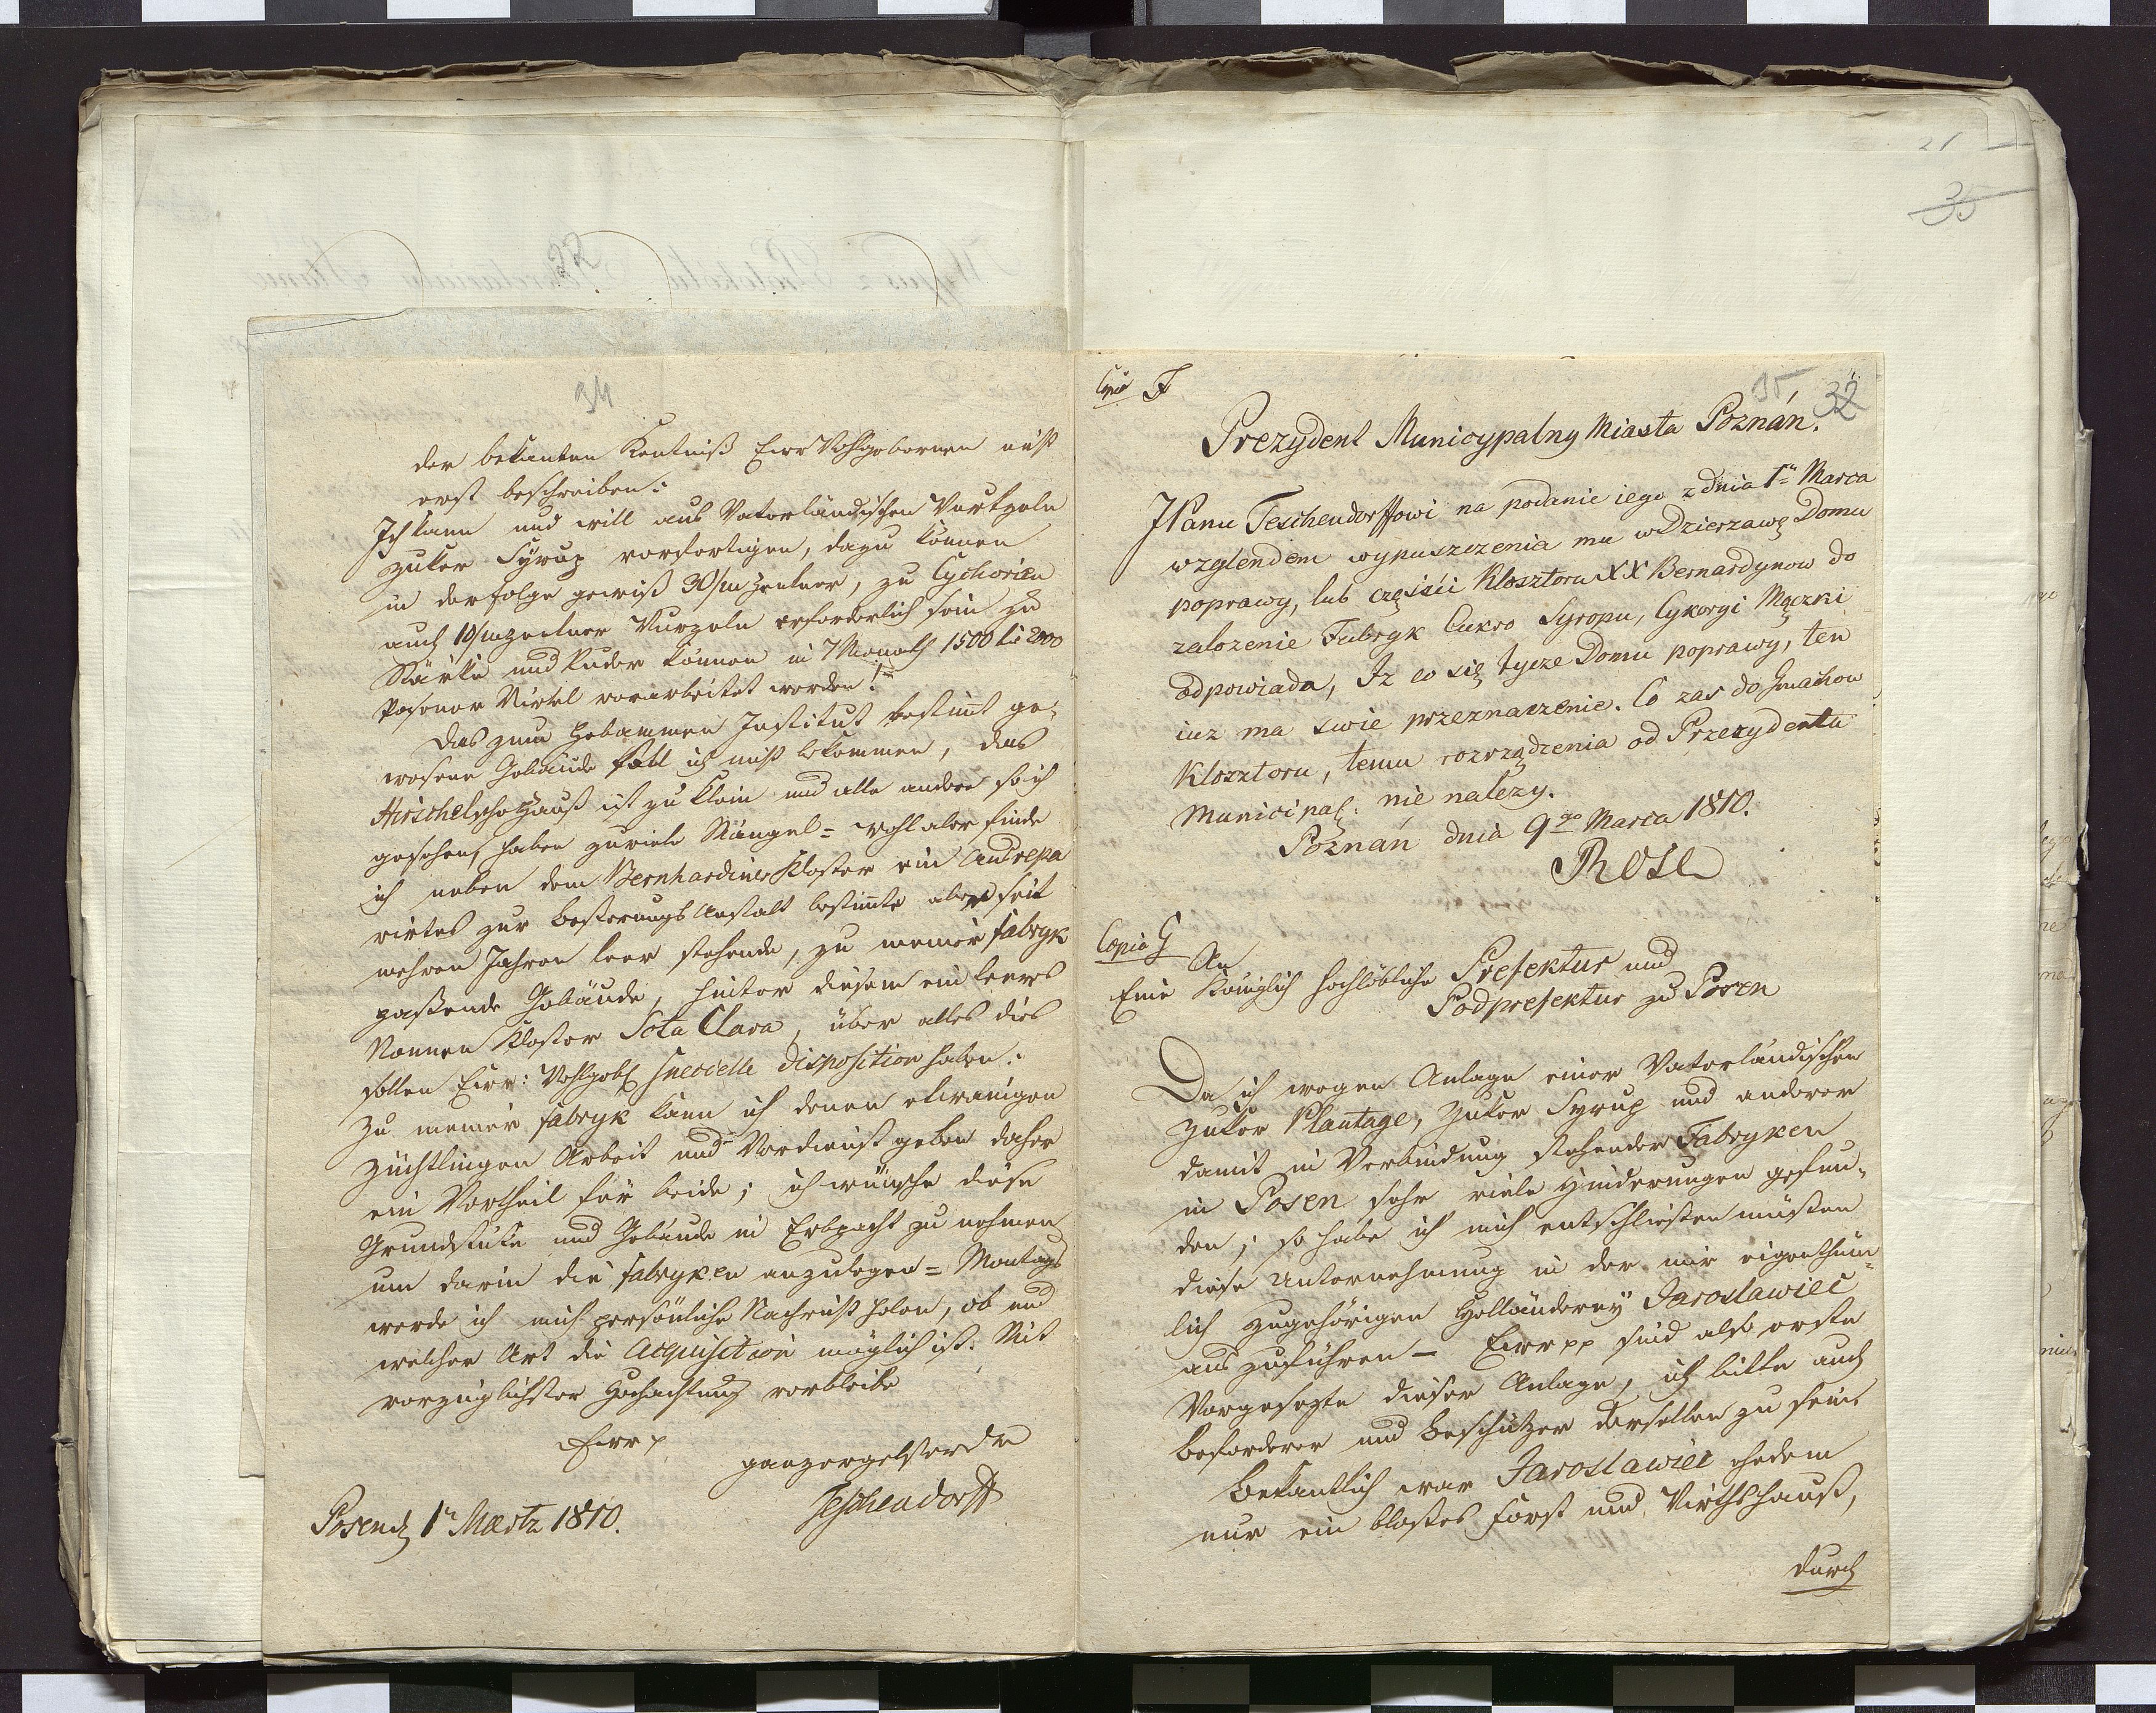 34
der bekanten Kentniß Eurr Wohlgebornen nicht
erst beschreiben:
Ich kann und will aus Vaterländischen Wurtzeln
Zuker Syrup verfertigen, dazu können
in der folge gewiß 30/m Zentner, zu Cychorien
auch 10/m Zentner Wurzeln erforderlich sein zu
Stärke und Puder können in 7 Monath 1500 bis 2000
Posener Virtel verarbeitet werden!
Das zum Hebammen Institut bestimt ge-
wesene Gebäude soll ich nicht bekommen, das
Hirschelsche Hauß ist zu klein und alle andere so ich
gesehen, haben zu viele Mängel = wohl aber finde
ich neben dem Bernhardiner Kloster ein
zur Besserungs Anstalt bestimte aber seit
mehren Jahren leer stehende, zu meiner fabryk
paßende Gebäude, hinter diesem ein leeres
Nonnen Kloster Scta Clara, über alles dies
sollen Eurr: Wohlgeb specielle Disposition haben.
Zu meiner fabryk kann ich denen etwanigen
Züchtlingen Arbeit und Verdienst geben daher
ein Vortheil für beide; ich wünsche diese
Grundstüke und Gebäude in Erbpacht zu nehmen
um darin die fabryken anzulegen = Montags
werde ich mich persönliche Nachricht holen, ob und
welcher Art die Acquisition möglich ist. Mit
vorzüglichster Hochachtung verbleibe
Eurr
ganz ergebenster Dr
Teschendorff
Posen d 1n Maertz 1810.
21
35
35 32
Copia F
Prezydent Municypalny Miasta Poznań.
JPanu Teschendorffowi na podanie iego z dnia 1n Marca
wzglendem wypuszczenia mu w Dzierzawę Domu
poprawy, lub części Klosztoru XX Bernardynow do
zalozenie Fabryk Cukro Syropu, Cykoryi Mączki
odpowiada, Iz co się tycze Domu poprawy, ten
iuz ma swie przeznaczenie. Co zas do Gmachow
Klosztoru, temu rozrządzenia od Prezydenta
Municipal: nie nalezy.
Poznań dnia 9go Marca 1810.
Rose
Copia G
An
Eine Königlich hochlöbliche Prefektur und
Podprefektur zu Posen
Da ich wegen Anlage einer Vaterländischen
Zuker Plantage, Zuker Syrup und anderer
damit in Verbindung stehender Fabryken
in Posen sehr viele Hinderungen gefun-
den; so habe ich mich entschließen müßen
diese Unternehmung in der mir eigenthüm-
lich zugehörigen Holländerey Jaroslawiec
aus zuführen – Eurr pp sind also erste
Vorgesezte dieser Anlage, ich bitte auch
Beförderer und Beschützer derselben zu sein
Bekantlich war Jaroslawiec ehedem
nur ein bloßes Forst und Wirthshauß,
durch